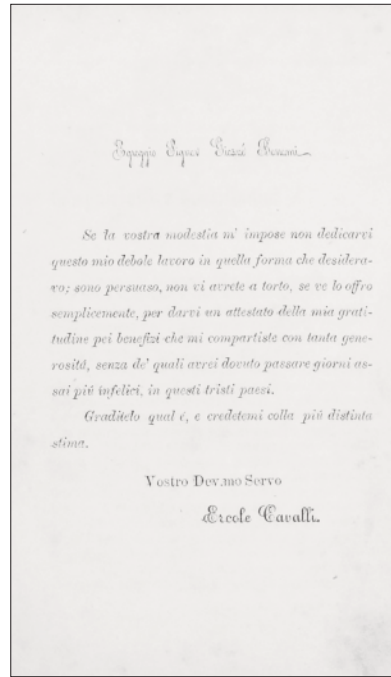 Signor
Se la vostra modestia m' impose non dedicarvi
questo mio debole lavoro in quella forma che desidera-
vo; sono persuaso, non vi avrete a torto, se ve lo offro
semplicemente, per darvi un attestato della mia grati-
tudine pei benefizi che mi compartiste con tanta gene-
rositá, senza de' quali avrei dovuto passare giorni as-
sai piú infelici, in questi tristi paesi.
Graditelo qual é, e credetemi colla piú distinta
stima.
Vostro Dev.mo Servo
Ercole Cavalli.